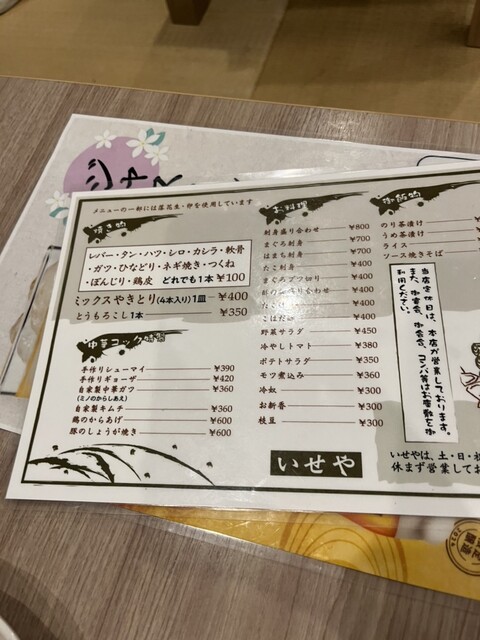 メニューの一部には落花生・卵を使用しています
焼き物
レバー・タン・ハツ・シロ・カシラ・軟骨
・ガツ・ひなどり・ネギ焼き・つくね
・ぼんじり・鶏皮 どれでも1本 ¥100
ミックスやきとり(4本入り)1皿 ¥400
とうもろこし1本 ¥350
中華コック特製
手作りシューマイ ¥390
手作りギョーザ ¥420
自家製中華ガツ ¥360
(ミノのからしあえ)
自家製キムチ ¥360
鶏のからあげ ¥600
豚のしょうが焼き ¥600
お料理
刺身盛り合わせ ¥800
まぐろ刺身 ¥700
はまち刺身 ¥700
たこ刺身 ¥400
まぐろブつ切り ¥400
盛り合わせ ¥400
¥400
こはだ酢 ¥400
野菜サラダ ¥450
冷やしトマト ¥380
ポテトサラダ ¥350
モツ煮込み ¥360
冷奴 ¥300
お新香 ¥300
枝豆 ¥300
いせや
御飯物
のり茶漬け
うめ茶漬け
ライス
ソース焼きそば
当店定休日は、本店が営業しております。
また、御宴会、御会食、コンパ等はお座敷を御
利用ください。
いせやは、土・日・祝
休まず営業してお